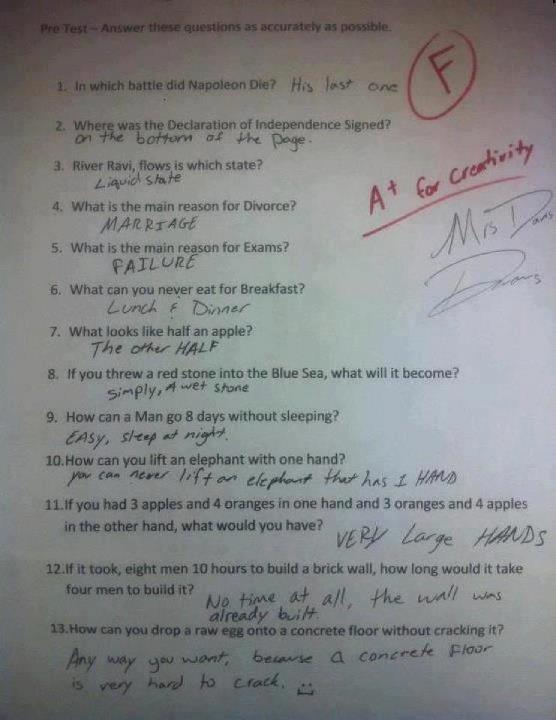 Pre Test – Answer these questions as accurately as possible.
F
1. In which battle did Napoleon Die? His last one
2. Where was the Declaration of Independence Signed?
on the bottom of the Page.
3. River Ravi, flows is which state?
Liquid state
A+ for Creativity
4. What is the main reason for Divorce?
MARRIAGE
Mrs Davis
5. What is the main reason for Exams?
FAILURE
6. What can you never eat for Breakfast?
Lunch & Dinner
7. What looks like half an apple?
The other HALF
8. If you threw a red stone into the Blue Sea, what will it become?
simply, A wet stone
9. How can a Man go 8 days without sleeping?
EASY, sleep at night.
10.How can you lift an elephant with one hand?
you can never lift an elephant that has 1 HAND
11.If you had 3 apples and 4 oranges in one hand and 3 oranges and 4 apples
in the other hand, what would you have? VERY Large HANDS
12.If it took, eight men 10 hours to build a brick wall, how long would it take
four men to build it? No time at all, the wall was
already built.
13.How can you drop a raw egg onto a concrete floor without cracking it?
Any way you want, because a concrete Floor
is very hard to crack.